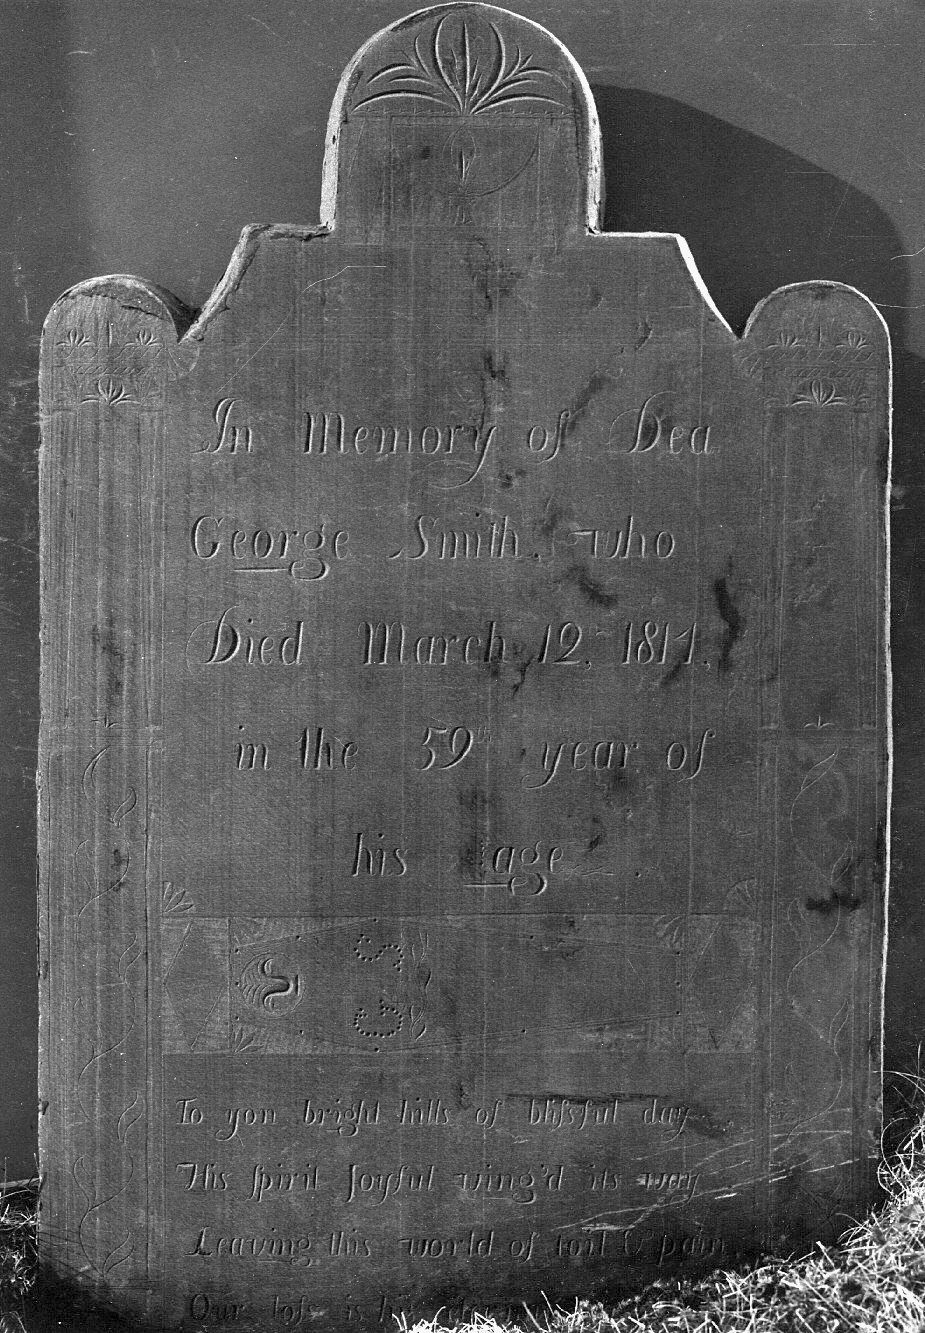 In Memory of Dea
George Smith, who
Died March 12, 1814,
in the 59th year of
his age.
To yon bright hills of blissful day
His spirit Joyful wing'd its way
Leaving this world of toil & pain
Our loss is his